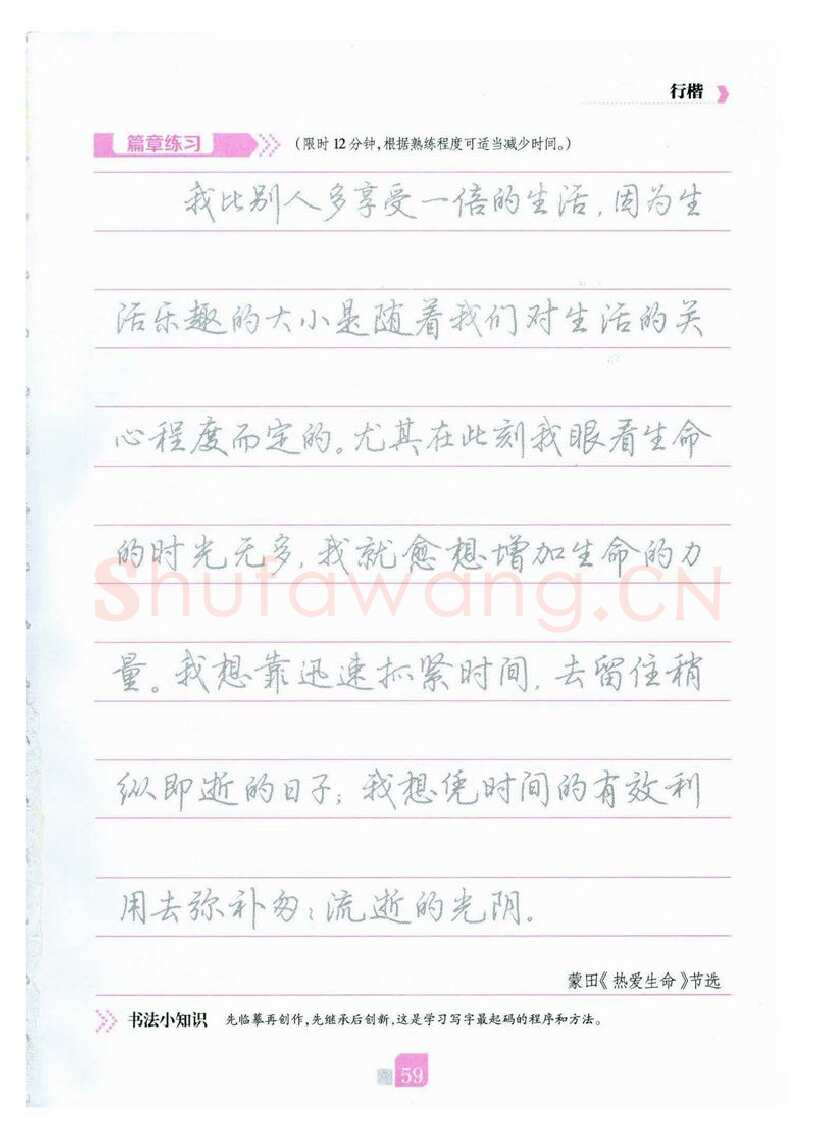 行楷
篇章练习 (限时12分钟,根据熟练程度可适当减少时间。)
我比别人多享受一倍的生活,因为生
活乐趣的大小是随着我们对生活的关
心程度而定的。尤其在此刻我眼看生命
的时光无多,我就愈想增加生命的力
量。我想靠迅速抓紧时间,去留住稍
纵即逝的日子;我想凭时间的有效利
用去弥补匆匆流逝的光阴。
蒙田《热爱生命》节选
书法小知识 先临摹再创作,先继承后创新,这是学习写字最起码的程序和方法。
59
Shufawang.CN